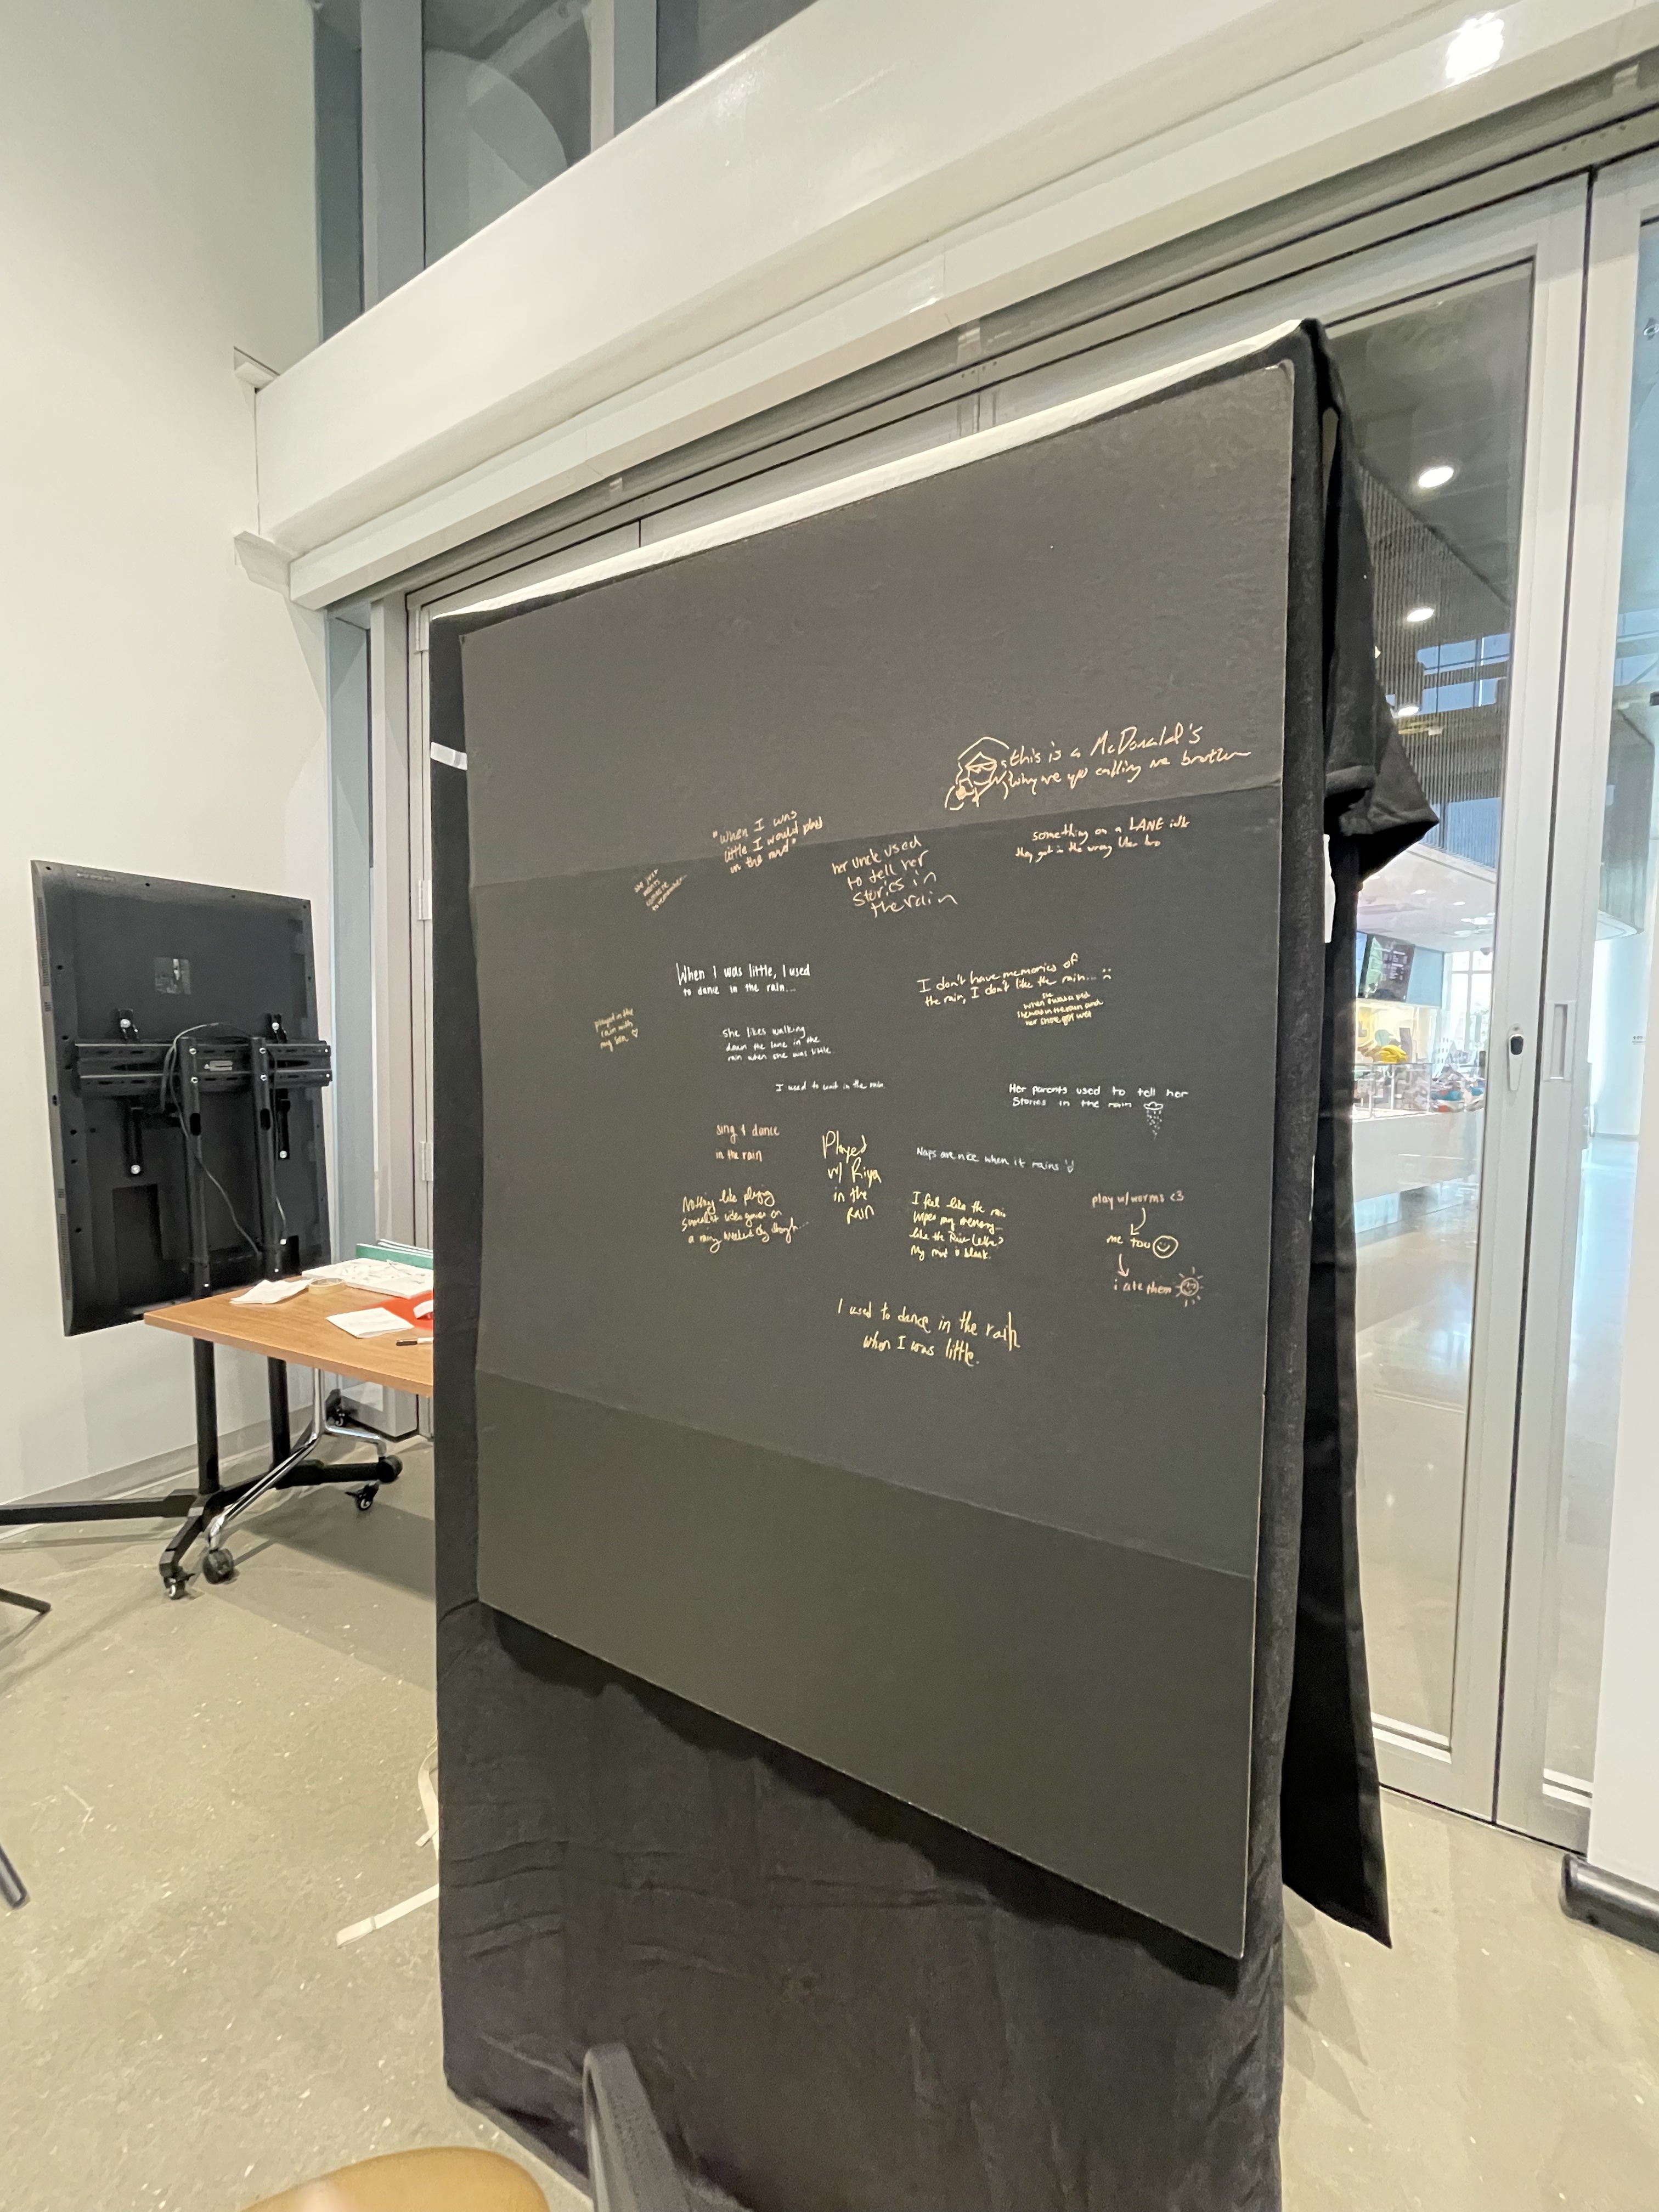 this is a McDonald's
why are you calling me brother
"When I was
little I would play
in the mud"
her uncle used
to tell her
stories in
the rain
something on a LANE idk
they got in the wrong Uber bro
she just
wants
someone
to remember...
When I was little, I used
to dance in the rain...
I don't have memories of
the rain, I don't like the rain... :(
she
when I was a kid
in the rain and
her shoe got wet
played in the
rain with
my son ♡
She likes walking
down the lane in the
rain when she was little.
I used to wait in the rain
Her parents used to tell her
Stories in the rain
sing & dance
in the rain
Played
w/ Riya
in the
Rain
Naps are nice when it rains
Nothing like playing
video games on
a rainy weekend day though...
I feel like the rain
wipes my memory
like the River Lethe?
My mind is blank.
play w/ worms <3
me too
i ate them
I used to dance in the rain
when I was little.